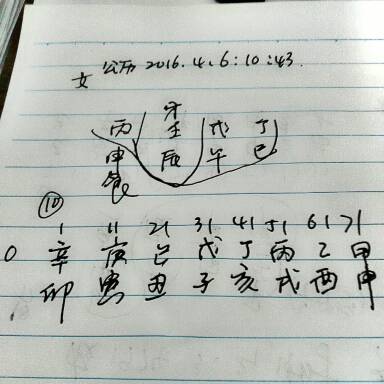 女 公历 2016.4.6:10:43.
丙 壬 戊 丁
申 辰 午 巳
⑩ 1 11 21 31 41 51 61 71
0 辛 庚 己 戊 丁 丙 乙 甲
卯 寅 丑 子 亥 戌 酉 申